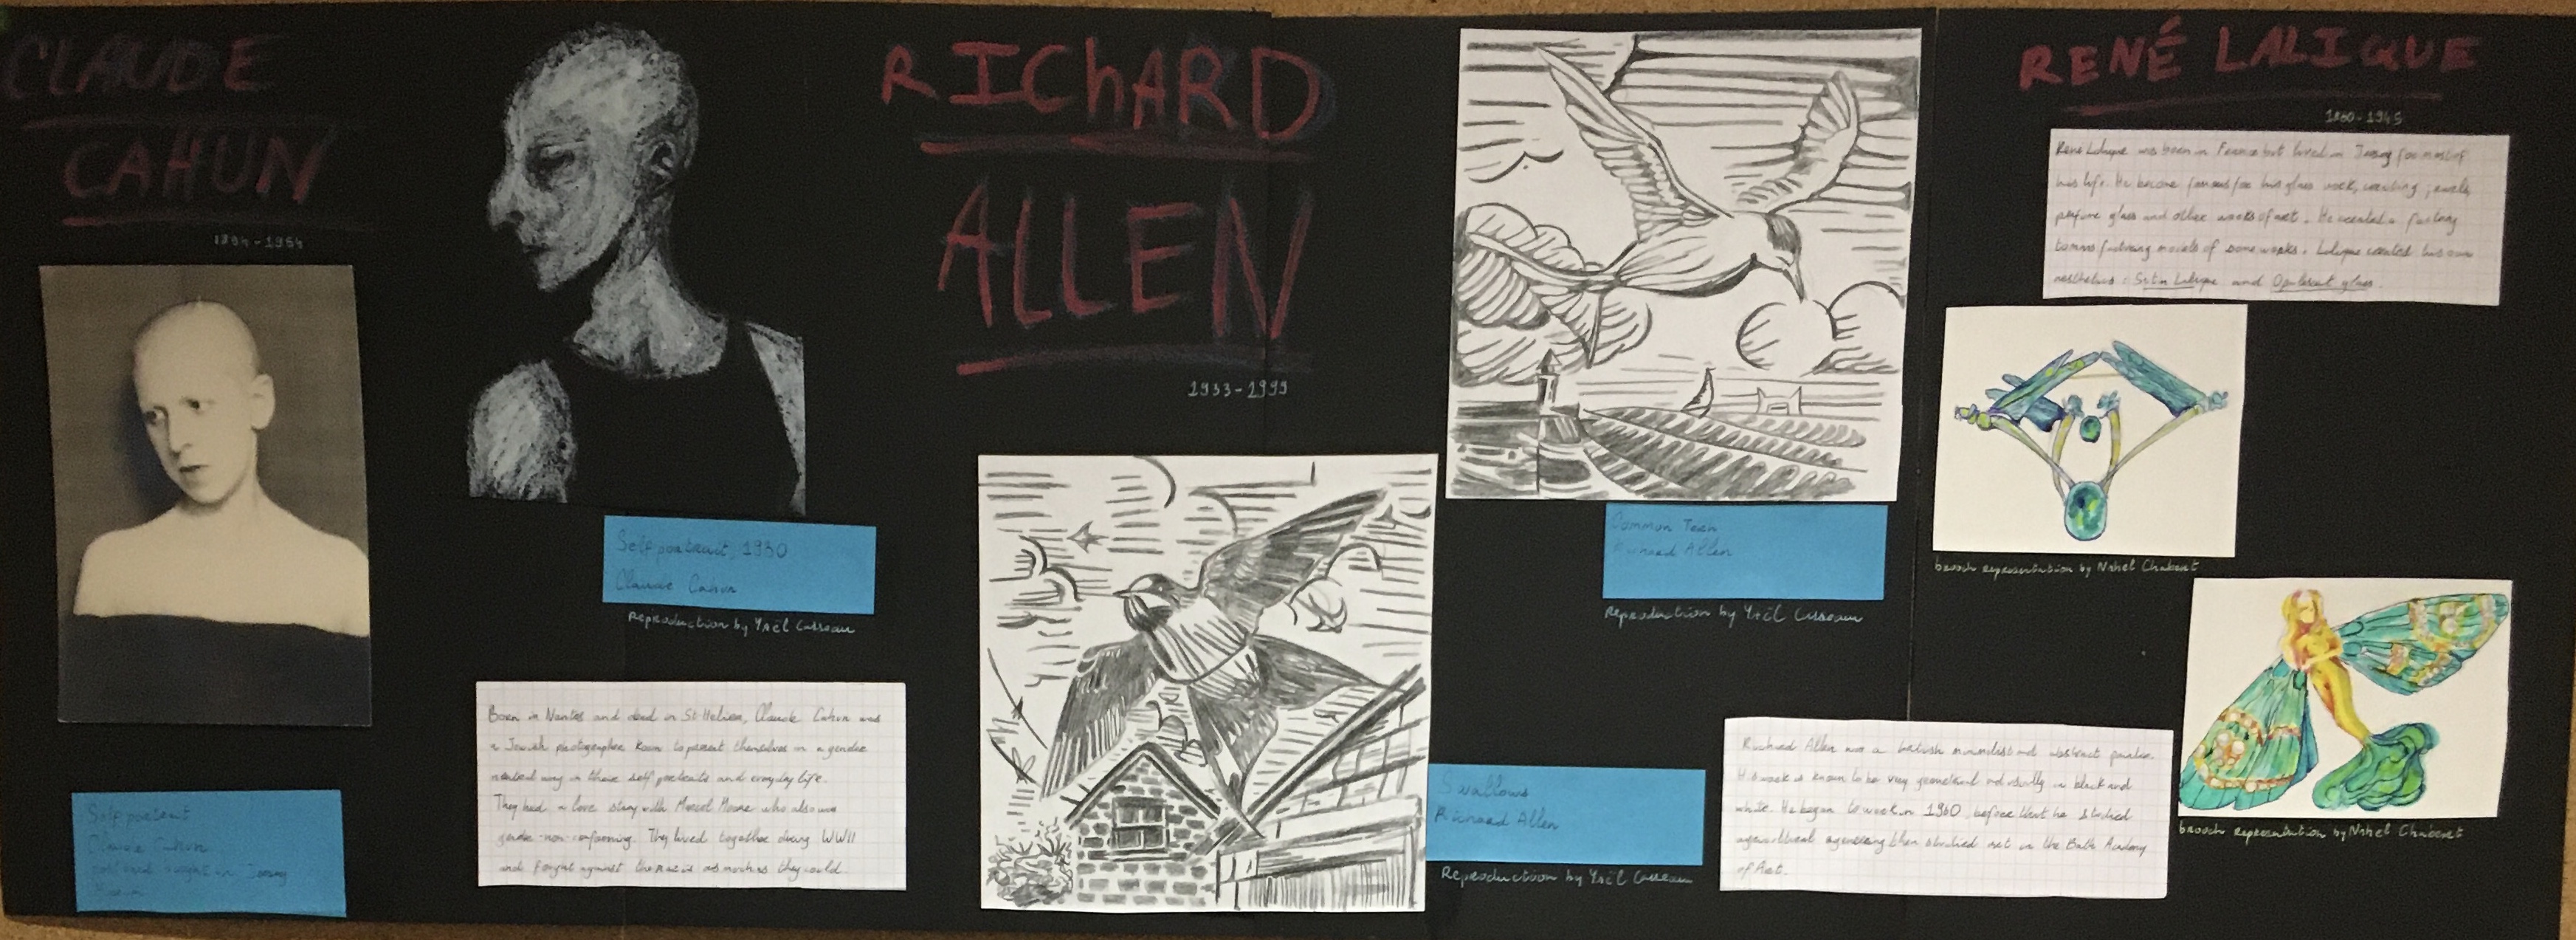 CLAUDE
CAHUN
1894-1954
Self portrait
Claude Cahun
postcard bought in Jersey
Museum
Self portrait, 1930
Claude Cahun
Reproduction by Yaël Cusseau
Born in Nantes and died in St Helier, Claude Cahun was
a Jewish photographer known to present themselves in a gender
neutral way in their self portraits and everyday life.
They had a love story with Marcel Moore who also was
gender-non-conforming. They lived together during WWII
and fought against the nazis as much as they could.
RIChARD
ALLEN
1933-1999
Swallows
Richard Allen
Reproduction by Yaël Cusseau
Common Tern
Richard Allen
Reproduction by Yaël Cusseau
Richard Allen was a british minimalist and abstract painter.
His work is known to be very geometrical and usually in black and
white. He began to work in 1960, before that he studied
agricultural engineering then studied art in the Bath Academy
of Art.
RENÉ LALIQUE
1860-1945
René Lalique was born in France but lived in Jersey for most of
his life. He became famous for his glass work, creating jewels,
perfume glass and other works of art. He created a factory
models of some works. Lalique created his own
aesthetics: Satin Lalique and Opalescent glass.
brooch representation by Nahel Chabenet
brooch representation by Nahel Chabenet